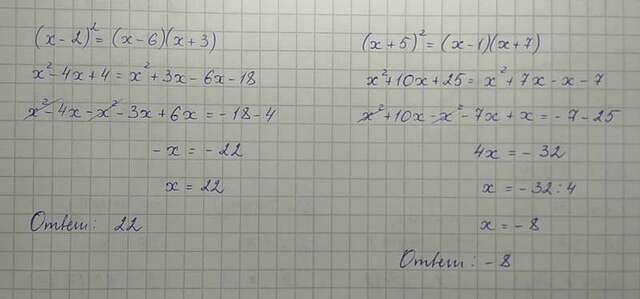 (x-2)²=(x-6)(x+3)
x²-4x+4=x²+3x-6x-18
x²-4x-x²-3x+6x=-18-4
-x=-22
x=22
Ответ: 22
(x+5)²=(x-1)(x+7)
x²+10x+25=x²+7x-x-7
x²+10x-x²-7x+x=-7-25
4x=-32
x=-32:4
x=-8
Ответ: -8